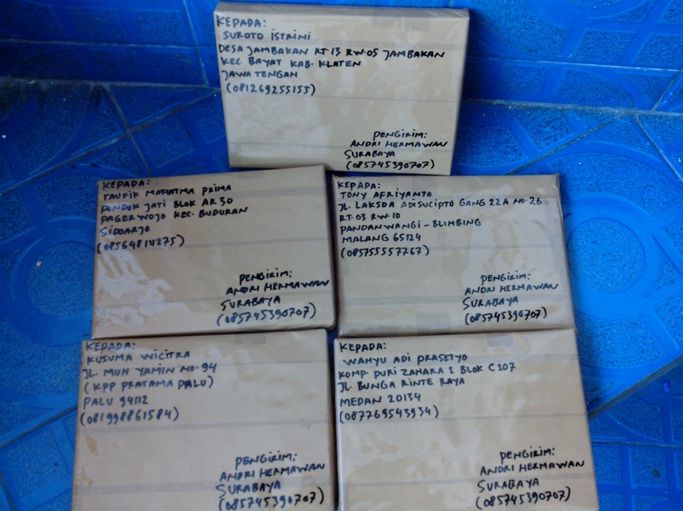 KEPADA:
SUROTO ISTRINI
DESA JAMBAKAN RT 13 RW 05 JAMBAKAN
KEC BAYAT KAB. KLATEN
JAWA TENGAH
(081269255155)
PENGIRIM:
ANDRI HERMAWAN
SURABAYA
(085745390707)
KEPADA:
TAUFIK MAHATMA PRIMA
PONDOK JATI BLOK AR 30
PAGERWOJO KEC. BUDURAN
SIDOARJO
(08564814275)
PENGIRIM:
ANDRI HERMAWAN
SURABAYA
(085745390707)
KEPADA:
TONY AFRIYANTO
JL. LAKSDA ADISUCIPTO GANG 22A NO. 26
RT. 03 RW. 10
PANDANWANGI - BLIMBING
MALANG 65124
(085755557267)
PENGIRIM:
ANDRI HERMAWAN
SURABAYA
(085745390707)
KEPADA:
KUSUMA WICITRA
JL. MUH YAMIN NO. 94
(KPP PRATAMA PALU)
PALU 94112
(081998861584)
PENGIRIM:
ANDRI HERMAWAN
SURABAYA
(085745390707)
KEPADA:
WAHYU ADI PRASETYO
KOMP. PURI ZAHARA 2 BLOK C 207
JL. BUNGA RINTE RAYA
MEDAN 20134
(087769543934)
PENGIRIM:
ANDRI HERMAWAN
SURABAYA
(085745390707)